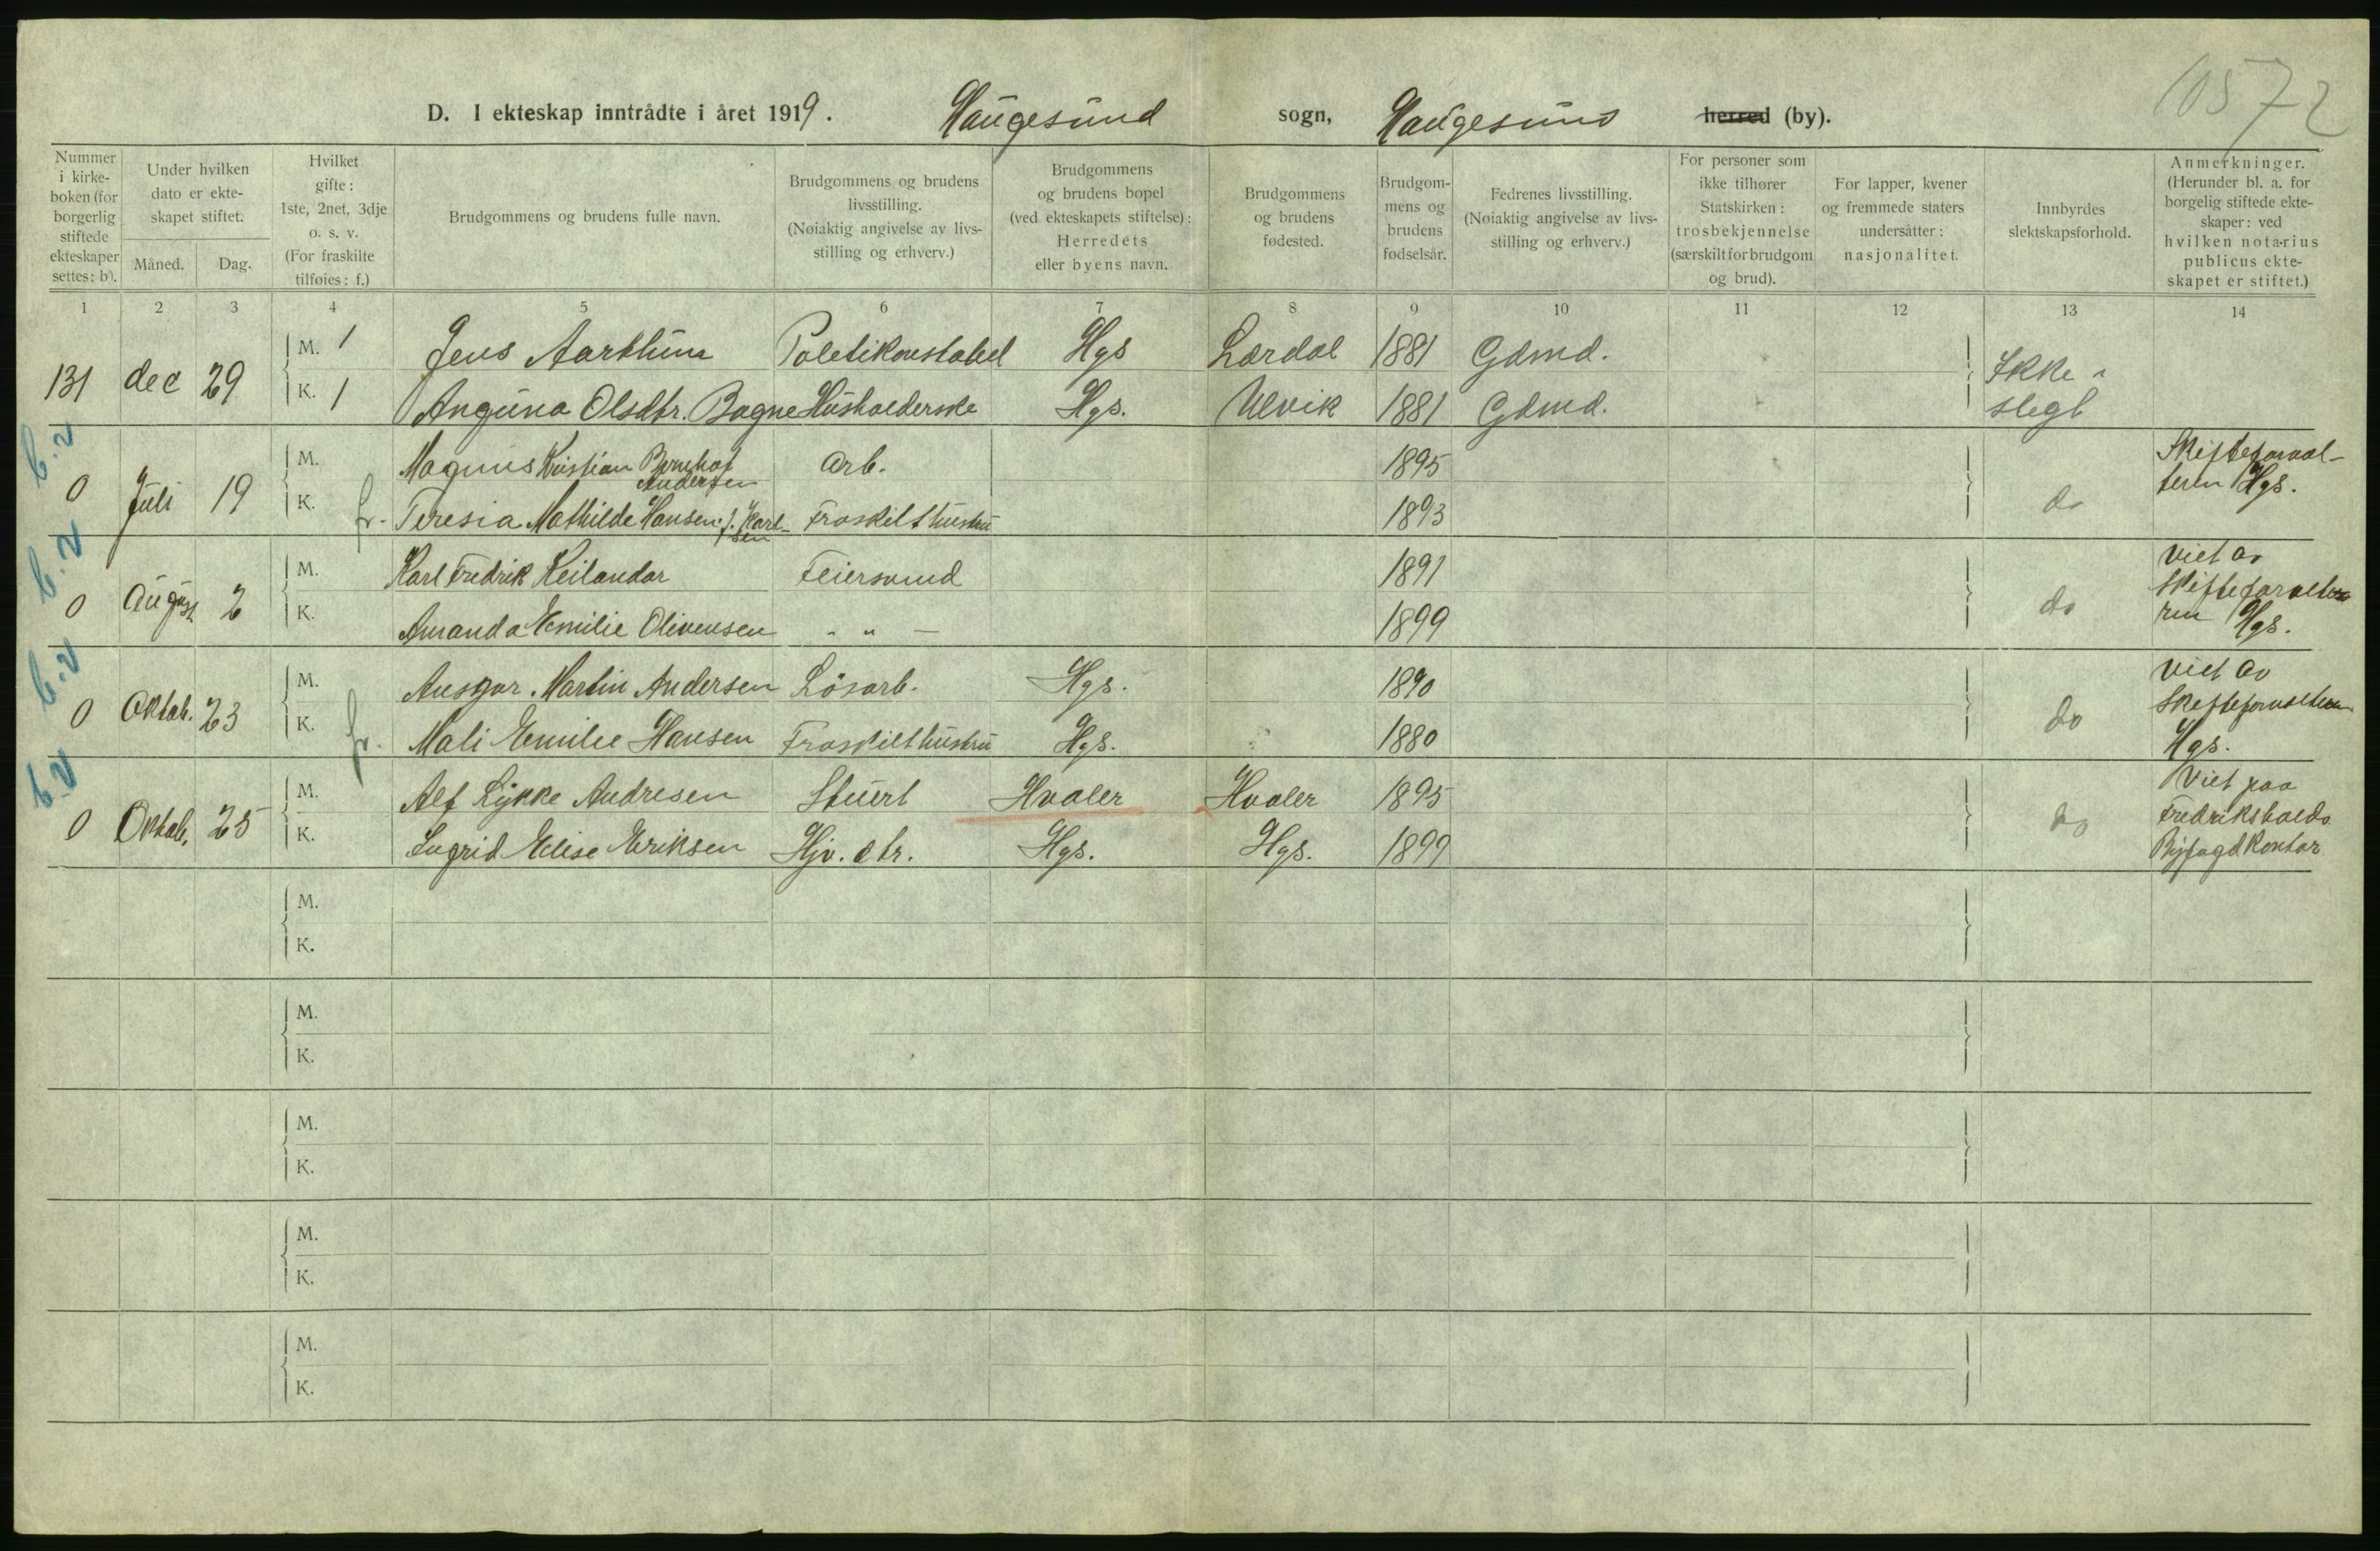 10572
D. I ekteskap inntrådte i året 1919. Haugesund sogn, Haugesund herred (by).
Nummer i kirkeboken (for borgerlig stiftede ekteskaper settes: b).
Under hvilken dato er ekteskapet stiftet.
Måned. Dag.
Hvilket gifte: 1ste, 2net, 3dje o. s. v. (For fraskilte tilføies: f.)
Brudgommens og brudens fulle navn.
Brudgommens og brudens livsstilling. (Nøiaktig angivelse av livsstilling og erhverv.)
Brudgommens og brudens bopel (ved ekteskapets stiftelse): Herredets eller byens navn.
Brudgommens og brudens fødested.
Brudgommens og brudens fødselsår.
Fedrenes livsstilling. (Nøiaktig angivelse av livsstilling og erhverv.)
For personer som ikke tilhører Statskirken: trosbekjennelse (særskilt for brudgom og brud).
For lapper, kvener og fremmede staters undersåtter: nasjonalitet.
Innbyrdes slektskapsforhold.
Anmerkninger. (Herunder bl. a. for borgelig stiftede ekteskaper: ved hvilken notarius publicus ekteskapet er stiftet.)
1 2 3 4 5 6 7 8 9 10 11 12 13 14
131 dec 29
M. 1 Jens Aarethun Politikonstabel Hgs Lærdal 1881 Gdmd. Ikke i
K. 1 Anguna Olsdtr. Bagne Husholderske Hgs. Ulvik 1881 Gdmd. slegt
b.v
0 Juli 19
M. Magnus Kristian Bernhof Andersen Arb. 1895 Skifteforval-
K. fr. Teresia Mathilde Hansen f. Karlsen Fraskilt hustru 1893 do teren Hgs.
b.v
0 August 2
M. Karl Fredrik Keilandar Feiersvend 1891 Viet av
K. Amanda Emilie Olivensen - " - 1899 do Skifteforvalteren Hgs.
b.v
0 Oktob. 23
M. Ansgar Martin Andersen Lösarb. Hgs. 1890 Viet av
K. fr. Mali Emilie Hansen Fraskilt hustru Hgs. 1880 do Skifteforvalteren Hgs.
b.v
0 Oktob. 25
M. Alf Lykke Andresen Stuert Hvaler Hvaler 1895 Viet paa
K. Ingrid Elise Eriksen Hjv. dtr. Hgs. Hgs. 1899 do Fredrikshalds Byfogdkontor
M.
K.
M.
K.
M.
K.
M.
K.
M.
K.